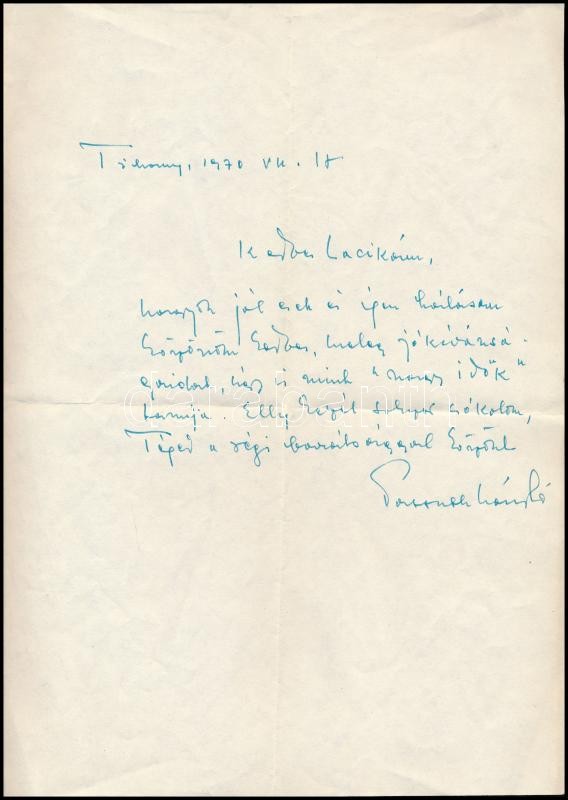 Tihany, 1970 VII. 17
Kedves Lacikám,
nagyon jól esik és igen hálásan
köszönöm kedves, meleg jókívánsá-
gaidat, is mint "nagy idők"
tanúja. Elly kezét sokszor csókolom,
Téged a régi barátsággal köszönt
Passuth László